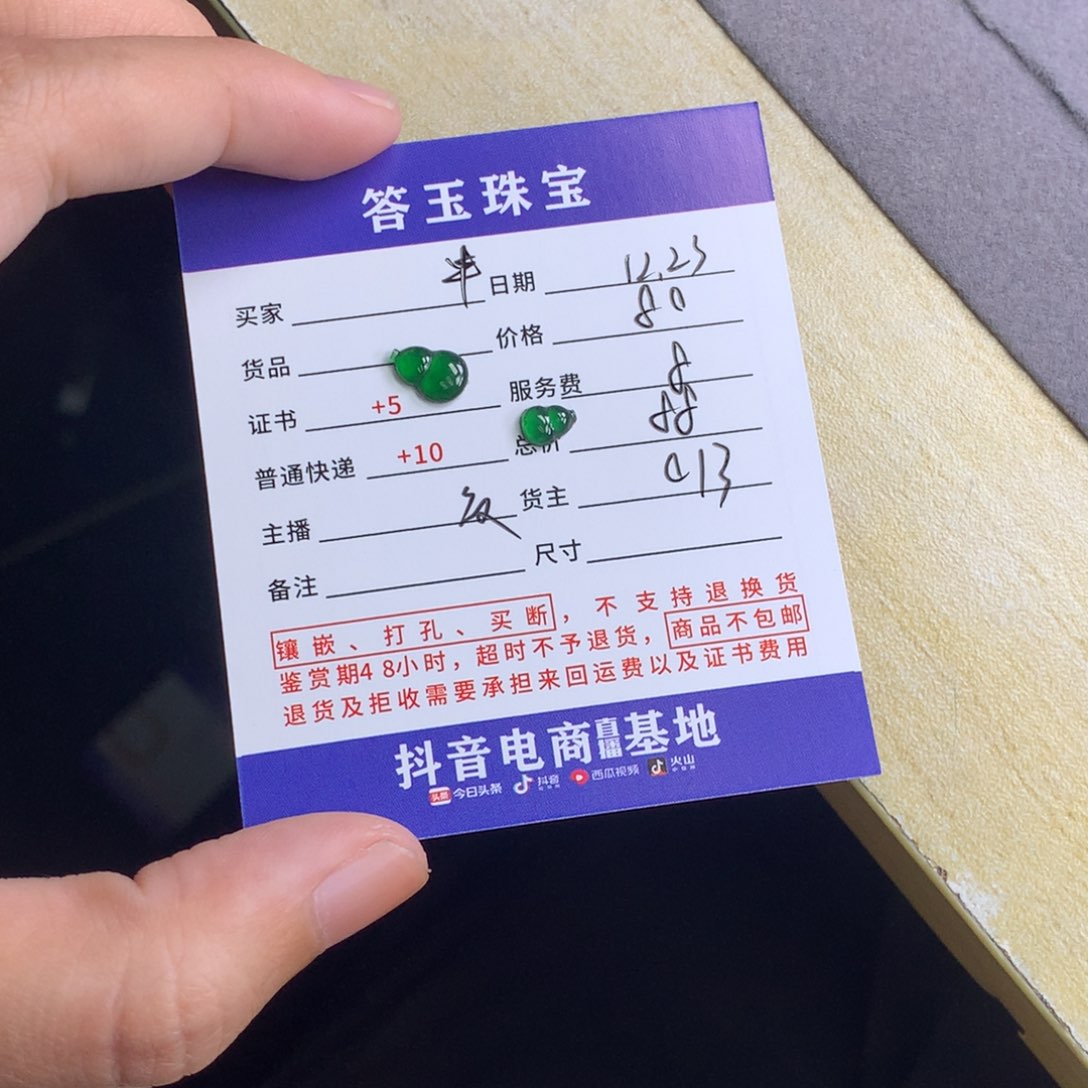 答玉珠宝
买家 日期 12.23
货品 价格 80
证书 +5 服务费 8
普通快递 +10 总价 88
主播 货主 C13
备注 尺寸
镶嵌、打孔、买断，不支持退换货
鉴赏期48小时，超时不予退货，商品不包邮
退货及拒收需要承担来回运费以及证书费用
抖音电商直播基地
头条 今日头条 抖音 西瓜视频 火山